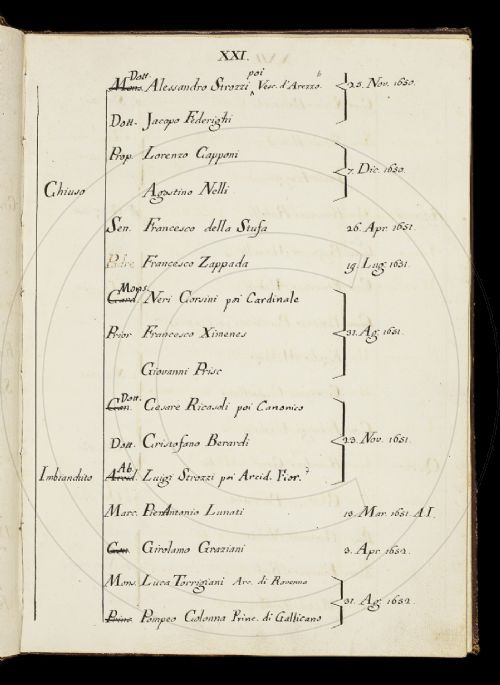 XXI.
Dott. Mons. Alessandro Strozzi, poi Vesc. d'Arezzo. 25. Nov. 1650.
Dott. Jacopo Federighi
Prop. Lorenzo Capponi
7. Dic. 1650.
Chiuso Agostino Nelli
Sen. Francesco della Stufa 26. Apr. 1651.
Padre Francesco Zappada 19. Lug. 1651.
Mons. Card. Neri Corsini poi Cardinale
Prior Francesco Ximenes 31. Ag. 1651.
Giovanni Prisc
Dott. Can. Cesare Ricasoli poi Canonico
Dott. Cristofano Berardi 23. Nov. 1651.
Imbiancato Ab. Arcid. Luigi Strozzi poi Arcid. Fior.
Marc. PierAntonio Lunati 13. Mar. 1651. A I.
Girolamo Graziani 3. Apr. 1652.
Mons. Luca Torrigiani Arc. di Ravenna
31. Ag. 1652.
Princ. Pompeo Colonna Princ. di Gallicano